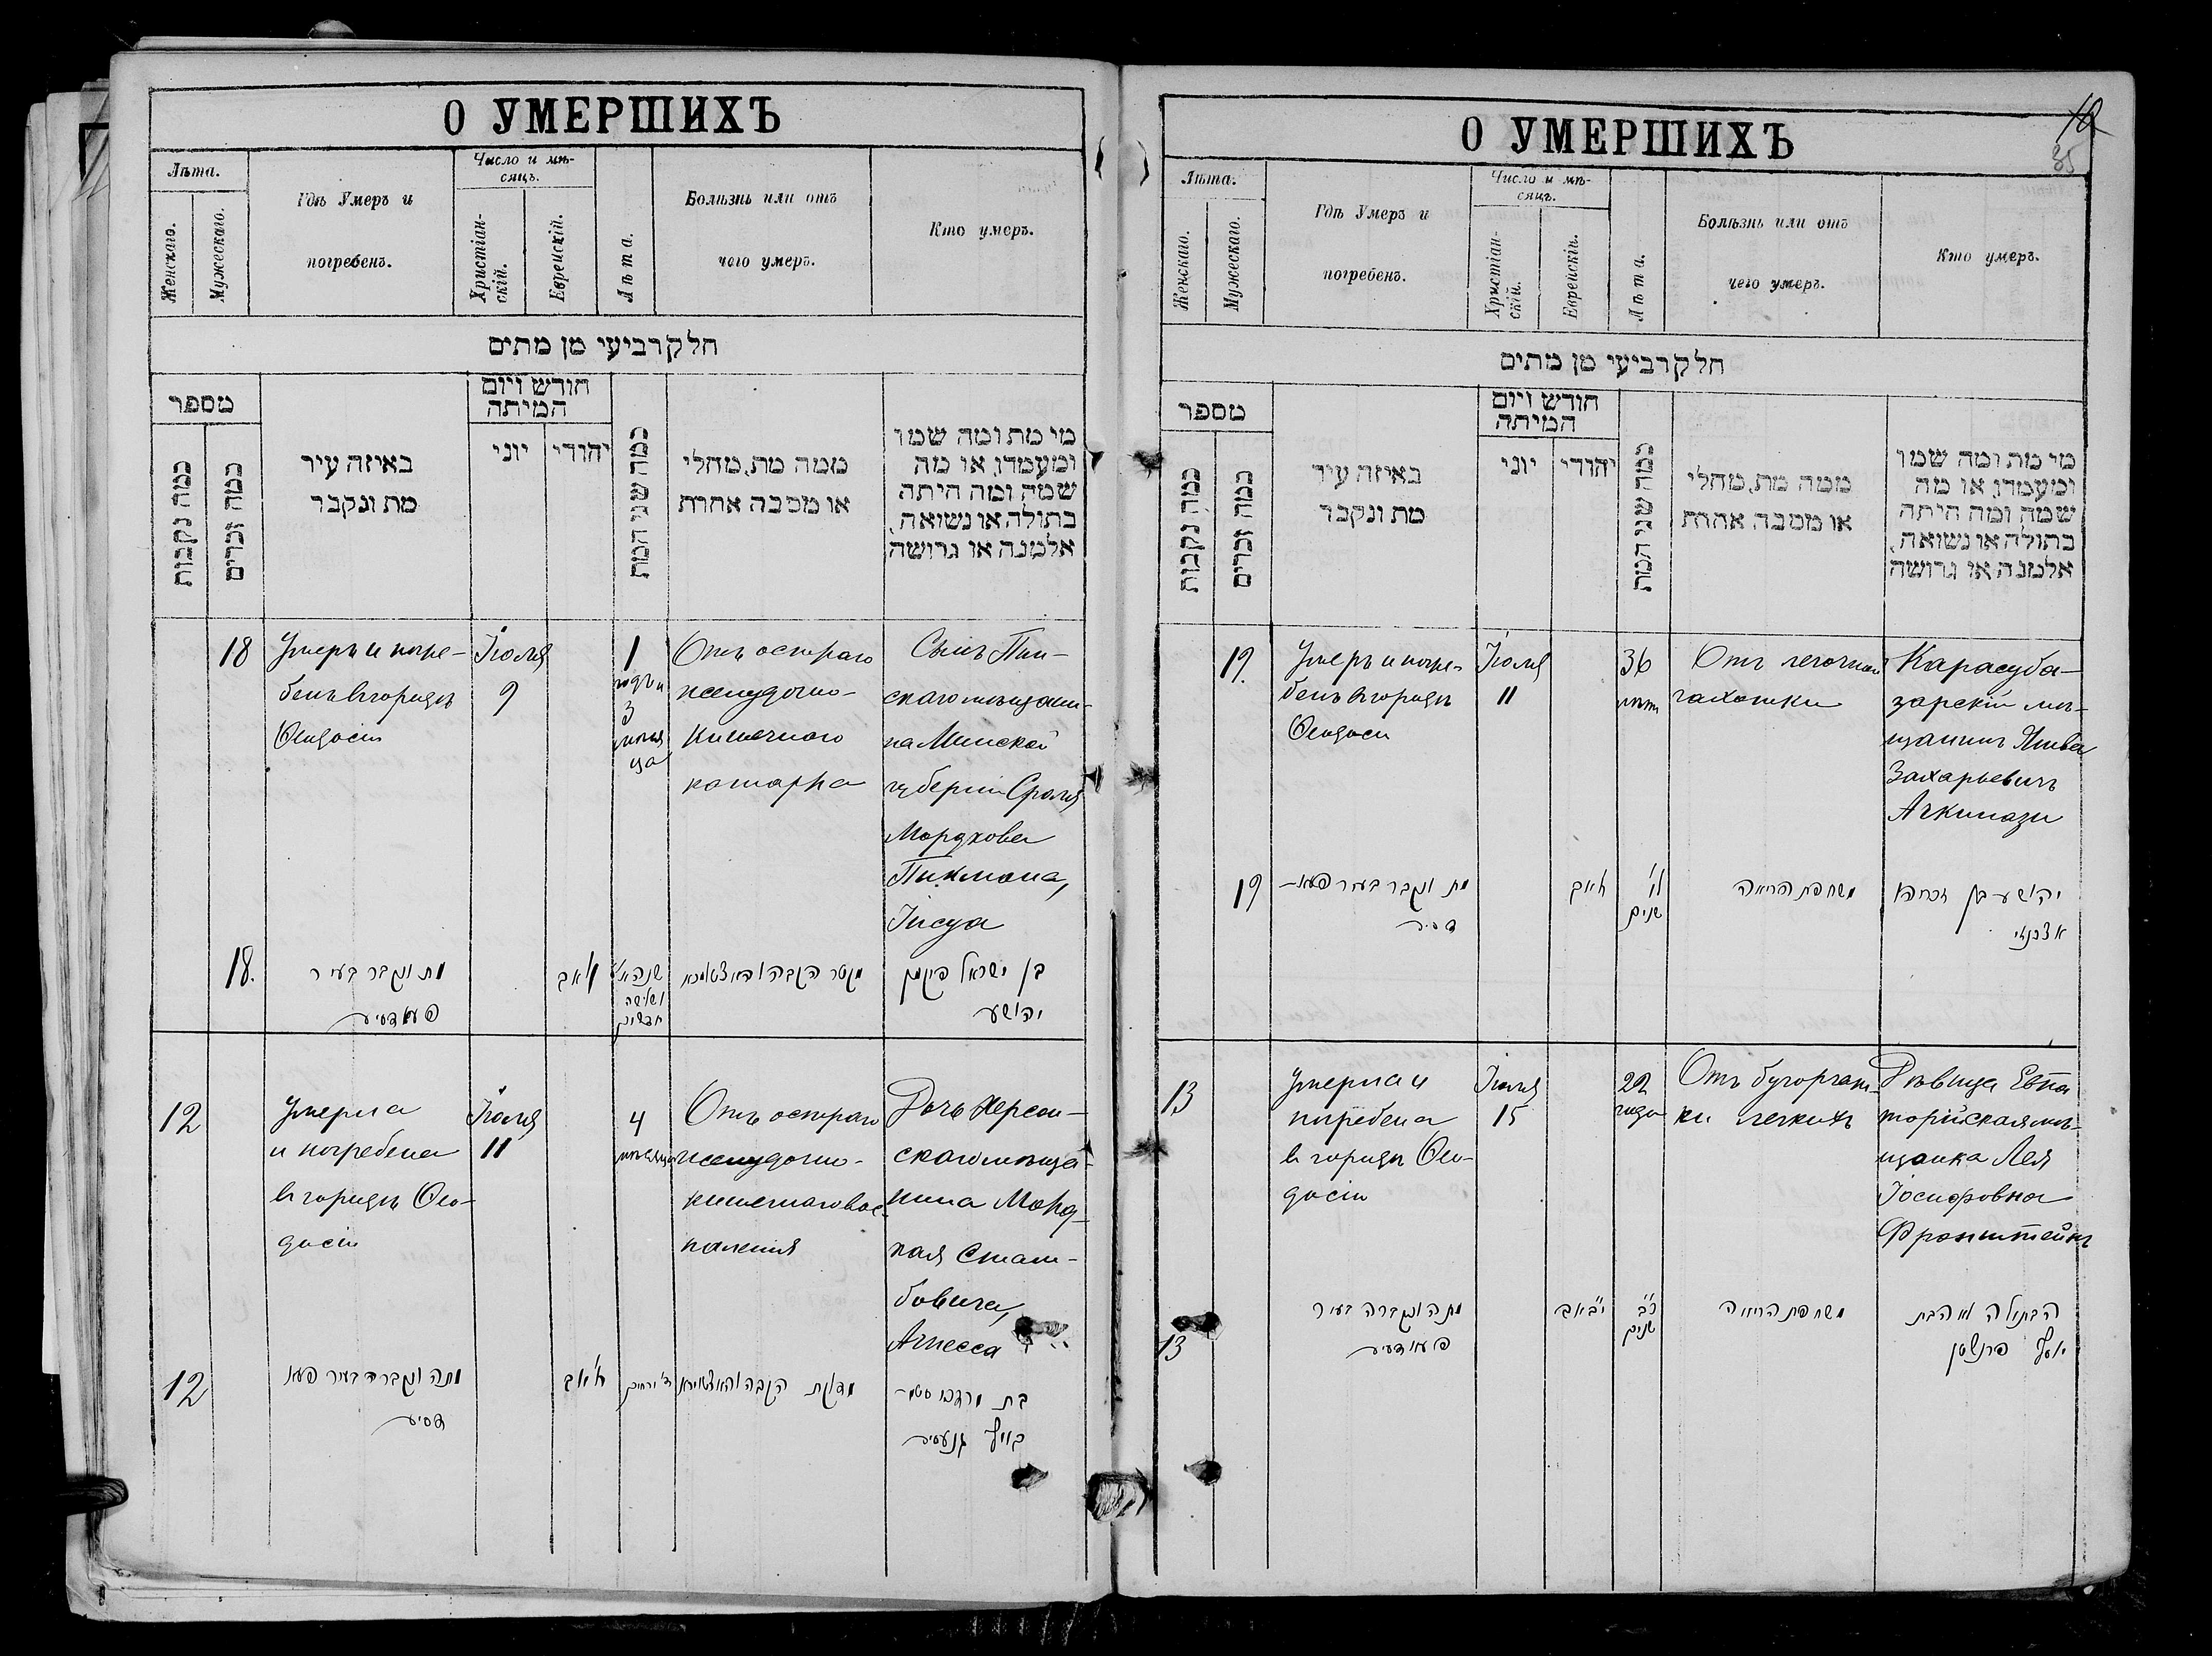 О УМЕРШИХЪ
Лѣта.
Женскаго.
Мужескаго.
Гдѣ Умеръ и
погребенъ.
Число и мѣ-
сяцъ.
Христіан-
скій.
Еврейскій.
Лѣта.
Болѣзнь или отъ
чего умеръ.
Кто умеръ.
חלק רביעי מן מתים
מספר
כמה נקבות
כמה זכרים
באיזה עיר
מת ונקבר
חודש ויום
המיתה
יוני
יהודי
כמה שני המת
ממה מת, מחלי
או מסבה אחרת
מי מת ומה שמו
ומעמדו, או מה
שמה ומה היתה
בתולה או נשואה,
אלמנה או גרושה
18
Умеръ и погре-
бенъ въ городѣ
Ѳеодосіи
Іюля
9
1
годъ и
3
мѣся
ца
Отъ остраго
желудочно-
кишечнаго
катарра
Сынъ Пин-
скаго мѣщани-
на Минской
губерніи Сроля
Мордхова
Пикмана,
Іисуа
18.
מת ונקבר בעיר
פעאדסיע
אב
שנה א'
ושלשה
חדשים
קטר הקבה והאצטומכא
בן ישראל פיקמן
יהושע
12
Умерла
и погребена
въ городѣ Ѳео-
досіи
Іюля
11
4
мѣсяца
Отъ остраго
желудочно-
кишечнаго вос-
паленія
Дочь Херсон-
скаго мѣща-
нина Морд-
хая Стам-
бовича,
Агнесса
12
מתה ונקברה בעיר פעא
דסיע
אב
ד' ירחים
דלקת הקבה והאצטומכא
בת מרדכי סטמ-
בוויץ אגנעסיע
О УМЕРШИХЪ
10
35
Лѣта.
Женскаго.
Мужескаго.
Гдѣ Умеръ и
погребенъ.
Число и мѣ-
сяцъ.
Христіан-
скій.
Еврейскій.
Лѣта.
Болѣзнь или отъ
чего умеръ.
Кто умеръ.
חלק רביעי מן מתים
מספר
כמה נקבות
כמה זכרים
באיזה עיר
מת ונקבר
חודש ויום
המיתה
יוני
יהודי
כמה שני המת
ממה מת, מחלי
או מסבה אחרת
מי מת ומה שמו
ומעמדו, או מה
שמה ומה היתה
בתולה או נשואה,
אלמנה או גרושה
19.
Умеръ и погре-
бенъ въ городѣ
Ѳеодосіи
Іюля
11
36
лѣтъ
Отъ легочной
чахотки
Карасуба-
зарскій мѣ-
щанинъ Яшва
Захарьевичъ
Ачкинази
19
מת ונקבר בעיר פעא-
דסיע
אב
ל"ו
שנים
משחפת הריאה
יהושע בן זכריהו
אשכנזי
13
Умерла и
погребена
въ городѣ Ѳео-
досіи
Іюля
15
22
года
Отъ бугорчат-
ки легкихъ
Дѣвица Евпа
торійская мѣ-
щанка Лея
Іосифовна
Фронштейнъ
13
מתה ונקברה בעיר
פעאדסיע
י"ב אב
כ"ב
שנים
משחפת הריאה
הבתולה לאה בת
יוסף פרנשטין